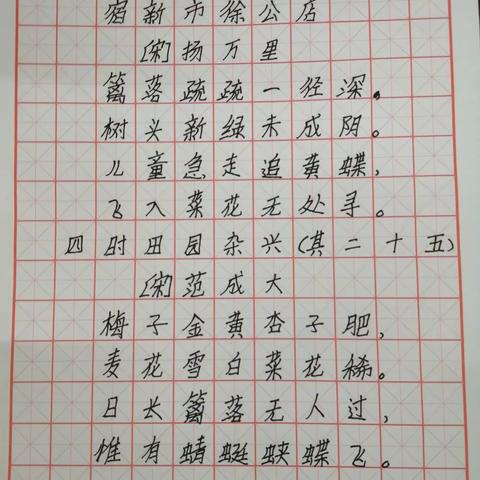 宿新市徐公店
[宋]扬万里
篱落疏疏一径深。
树头新绿未成阴。
儿童急走追黄蝶,
飞入菜花无处寻。
四时田园杂兴(其二十五)
[宋]范成大
梅子金黄杏子肥,
麦花雪白菜花稀。
日长篱落无人过,
惟有蜻蜓蛱蝶飞。